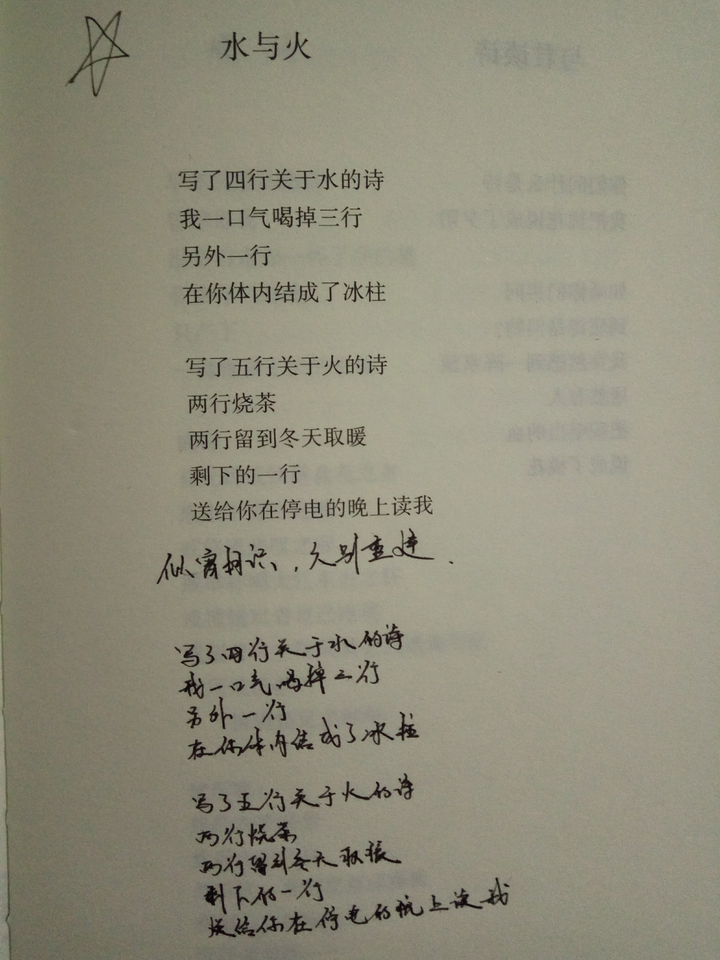 水与火
写了四行关于水的诗
我一口气喝掉三行
另外一行
在你体内结成了冰柱
写了五行关于火的诗
两行烧茶
两行留到冬天取暖
剩下的一行
送给你在停电的晚上读我
似曾相识，久别重逢.
写了四行关于水的诗
我一口气喝掉三行
另外一行
在你体内结成了冰柱
写了五行关于火的诗
两行烧茶
两行留到冬天取暖
剩下的一行
送给你在停电的晚上读我